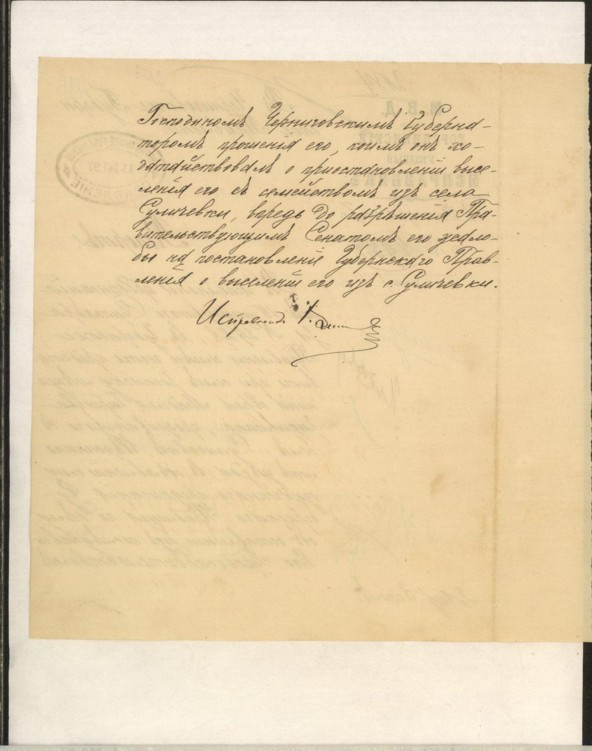 Господиномъ Черниговскимъ Губерна-
торомъ прошенія его, коимъ онъ хо-
датайствовалъ о пріостановленіи высе-
ленія его съ семействомъ изъ села
Суличевки, впредь до разрѣшенія Пра-
вительствующимъ Сенатомъ его жало-
бы на постановленіе Губернскаго Прав-
ленія о выселеніи его изъ с. Суличевки.
Исправникъ